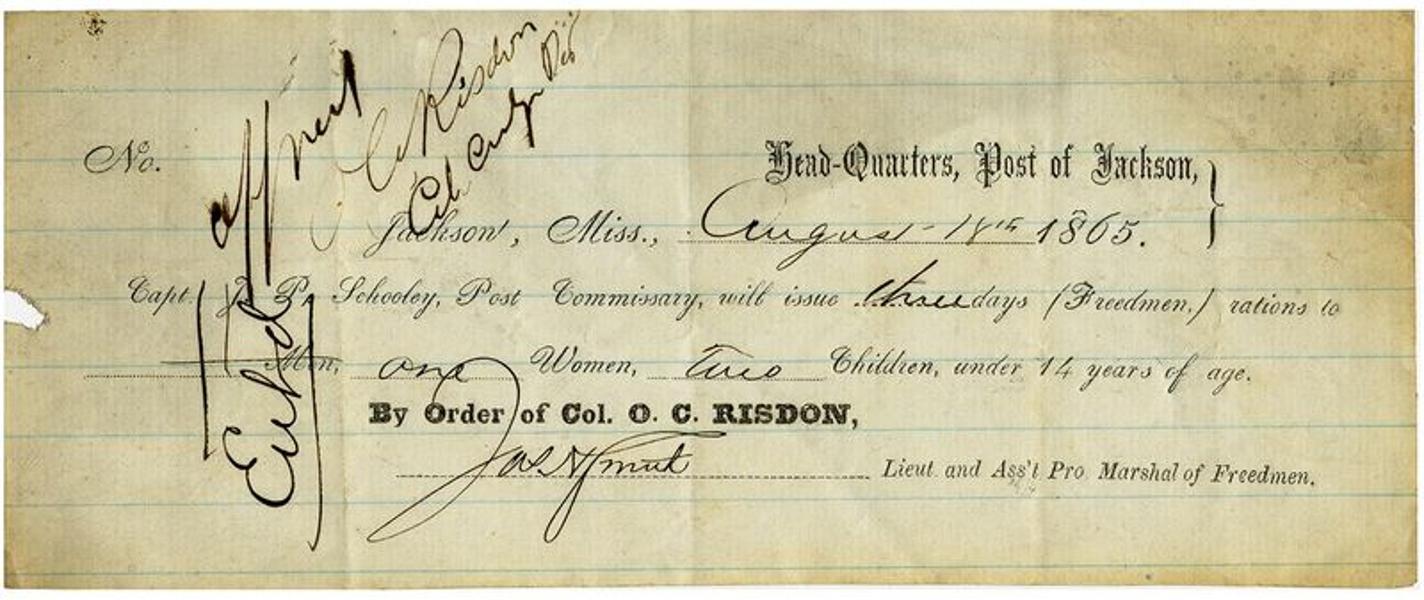 No.
Head-Quarters, Post of Jackson,
Jackson, Miss., August 18th 1865.
Capt. J. P. Schooley, Post Commissary, will issue three days (Freedmen,) rations to
Men, one Women, two Children, under 14 years of age.
By Order of Col. O. C. RISDON,
Lieut. and Ass't Pro Marshal of Freedmen.
O C Risdon
Col